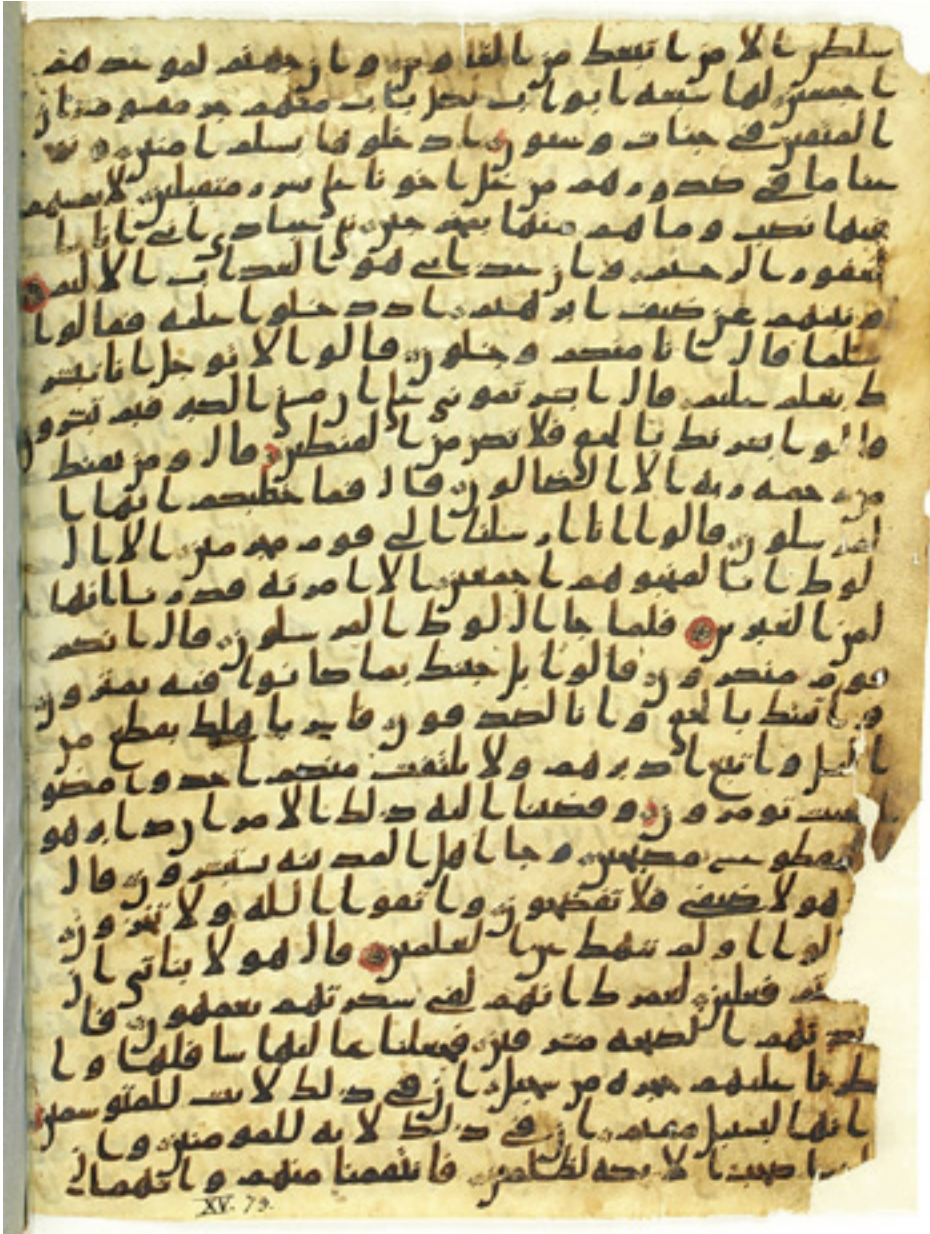 سلطن الا من اتبعك من الغاوين وان جهنم لموعدهم
اجمعين لها سبعه ابواب لكل باب منهم جز مقسوم ان
المتقين في جنات وعيون ادخلوها بسلم امنين ونز
عنا ما في صدورهم من غل اخونا على سرر متقبلين لا يمسهم
فيها نصب وما هم منها بمخرجين نبي عبادي اني انا ا
لغفور الرحيم وان عذابي هو العذاب الاليم
ونبيهم عن ضيف ابرهيم اذ دخلوا عليه فقالوا
سلما قال انا منكم وجلون قالوا لا توجل انا نبشر
ك بغلم عليم قال ابشرتموني على ان مسني الكبر فبم تبشرون
قالوا بشرنك بالحق فلا تكن من القنطين قال ومن يقنط
من رحمه ربه الا الضالون قال فما خطبكم ايها ا
لمرسلون قالوا انا ارسلنا الى قوم مجرمين الا ال
لوط انا لمنجوهم اجمعين الا امرته قدرنا انها
لمن الغبرين فلما جا ال لوط المرسلون قال انكم
قوم منكرون قالوا بل جينك بما كانوا فيه يمترون
واتينك بالحق وانا لصدقون فاسر باهلك بقطع من
اليل واتبع ادبرهم ولا يلتفت منكم احد وامضو
ا حيث تومرون وقضينا اليه ذلك الامر ان دابر هو
مقطوع مصبحين وجا اهل المدينه يستبشرون قال
هولا ضيفي فلا تفضحون واتقوا الله ولا تخزون
لوا اولم ننهك عن العلمين قال هولا بناتي ان
تم فعلين لعمرك انهم لفي سكرتهم يعمهون فا
خذتهم الصيحه مشرقين فجعلنا عاليها سافلها وا
طرنا عليهم حجره من سجيل ان في ذلك لايت للمتوسمين
انها لبسبيل مقيم ان في ذلك لايه للمومنين وان
اصحب الايكه لظلمين فانتقمنا منهم وانهما
XV. 79.